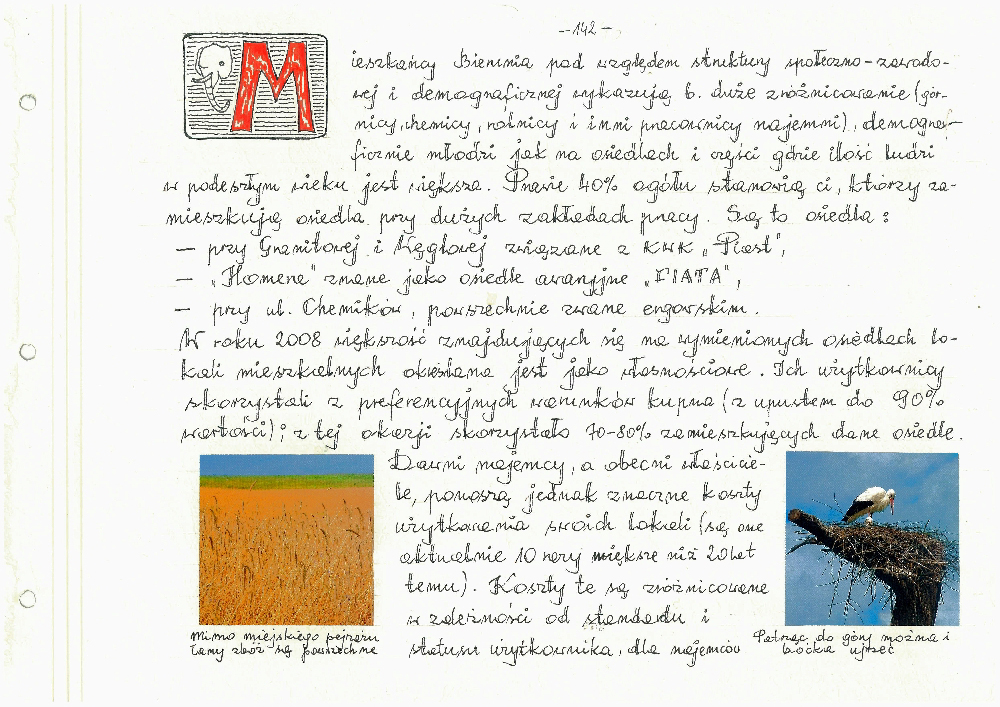 -- 142 --
Mieszkańcy Bierunia pod względem struktury społeczno-zawodo-
wej i demograficznej wykazują b. duże zróżnicowanie (gór-
nicy, chemicy, rolnicy i inni pracownicy najemni), demogra-
ficznie młodzi jak na osiedlach i części gdzie ilość ludzi
w podeszłym wieku jest większa. Prawie 40% ogółu stanowią ci, którzy za-
mieszkują osiedla przy dużych zakładach pracy. Są to osiedla:
— przy Granitowej i Węglowej związane z KWK „Piast",
— „Homera" znane jako osiedle awaryjne „FIATA",
— przy ul. Chemików, powszechnie zwane ergowskim.
W roku 2008 większość znajdujących się na wymienionych osiedlach lo-
kali mieszkalnych określana jest jako własnościowe. Ich użytkownicy
skorzystali z preferencyjnych warunków kupna (z upustem do 90%
wartości); z tej okazji skorzystało 70-80% zamieszkujących dane osiedle.
Dawni najemcy, a obecni właścicie-
le, ponoszą jednak znaczne koszty
użytkowania swoich lokali (są one
aktualnie 10 razy większe niż 20 lat
temu). Koszty te są zróżnicowane
w zależności od standardu i
statusu użytkownika, dla najemców
Mimo miejskiego pejzażu
łany zbóż są powszechne
Patrząc do góry można i
boćka ujrzeć